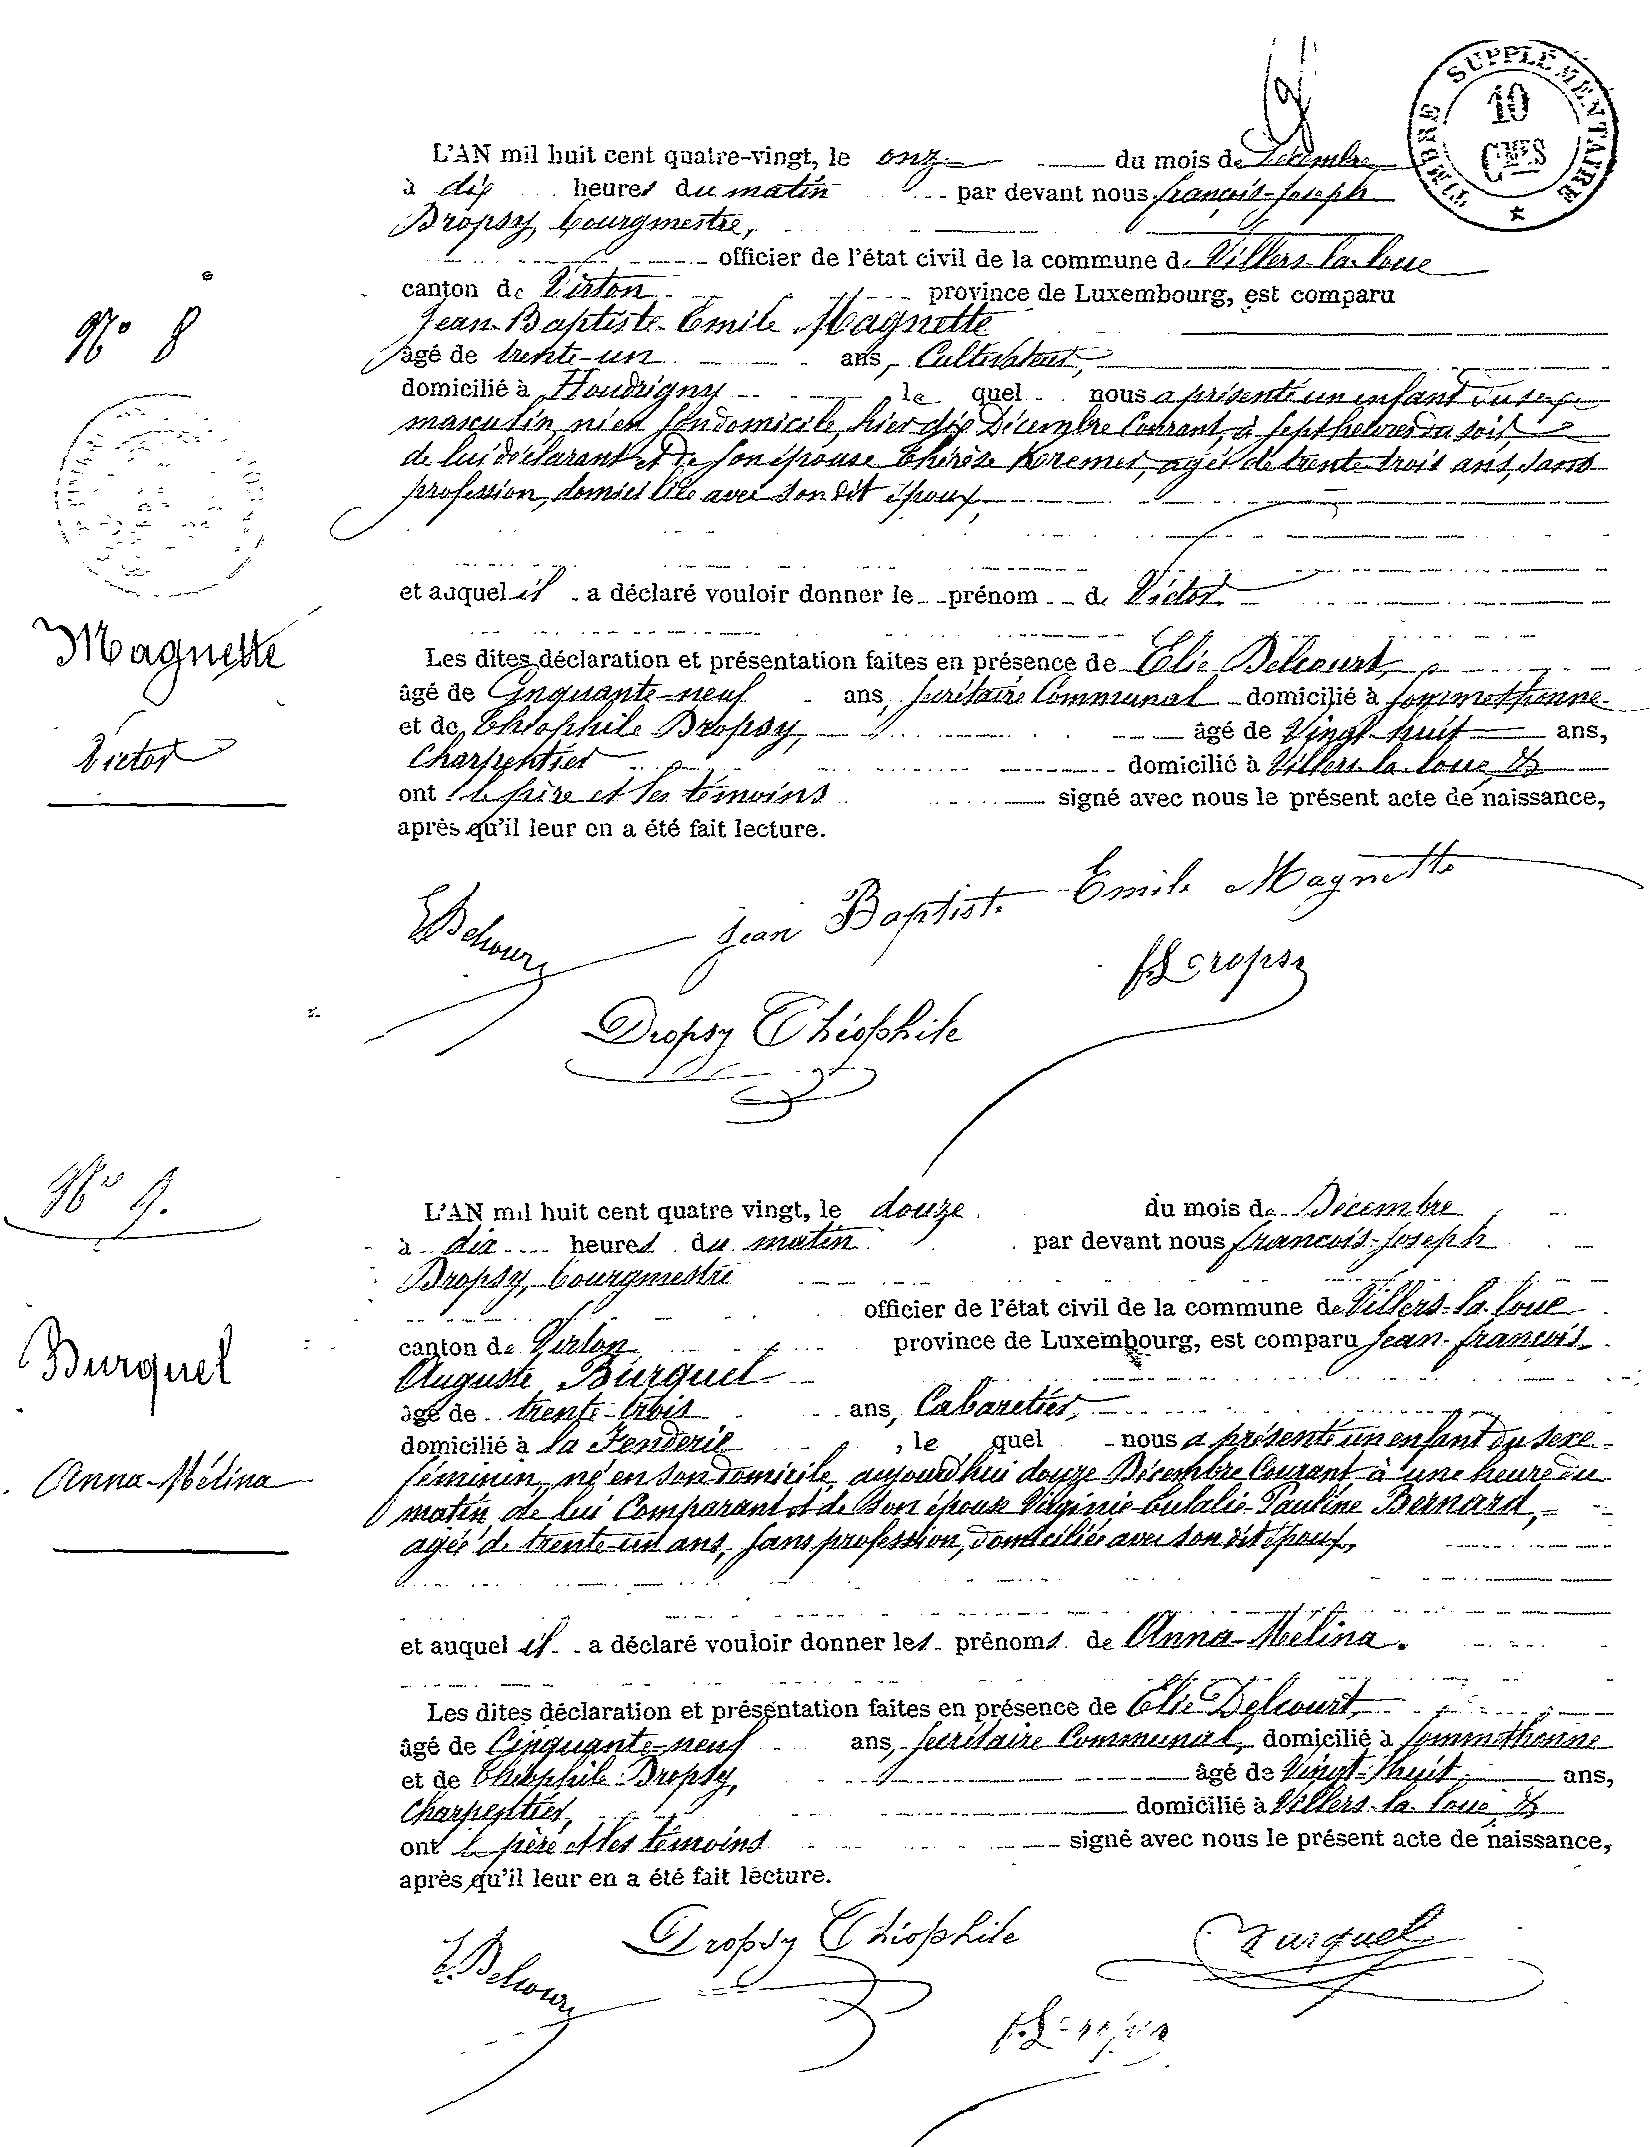 TIMBRE SUPPLÉMENTAIRE
10
CMES
L'AN mil huit cent quatre-vingt, le onze du mois de Décembre
à dix heures du matin par devant nous françois-Joseph
Dropsy, bourgmestre,
officier de l'état civil de la commune de Villers-la-loue
canton de Virton province de Luxembourg, est comparu
N° 8
Jean-Baptiste-Emile Magnette
âgé de trente-un ans, Cultivateur,
domicilié à Houdrigny le quel nous a présenté un enfant du sexe
masculin, né en son domicile, hier dix Décembre Courant, à sept heures du soir,
de lui déclarant et de son épouse Thérèse Kremer, agée de trente trois ans, sans
profession, domiciliée avec son dit époux,
et auquel il a déclaré vouloir donner le prénom de Victor
Magnette
Victor
Les dites déclaration et présentation faites en présence de Elie Delcourt,
âgé de Cinquante-neuf ans, secrétaire Communal domicilié à Sommethonne
et de Théophile Dropsy, âgé de Vingt-huit ans,
Charpentier domicilié à Villers-la-loue, &
ont le père et les témoins signé avec nous le présent acte de naissance,
après qu'il leur en a été fait lecture.
E Delcourt Jean Baptiste Emile Magnette
fJ Dropsy
Dropsy Théophile
N° 9.
L'AN mil huit cent quatre vingt, le douze du mois de Décembre
à dix heures du matin par devant nous francois-Joseph
Dropsy, bourgmestre
officier de l'état civil de la commune de Villers-la-loue
canton de Virton province de Luxembourg, est comparu Jean-francois-
Auguste Burquel
âgé de trente-trois ans, Cabaretier,
domicilié à la Fenderie, le quel nous a présenté un enfant du sexe
féminin, né en son domicile, aujourd'hui douze Décembre Courant à une heure du
matin, de lui Comparant et de son épouse Virginie-Eulalie-Pauline Bernard,
agée de trente-un ans, sans profession, domiciliée avec son dit époux,
Burquel
Anna-Mélina
et auquel il a déclaré vouloir donner les prénoms de Anna-Mélina.
Les dites déclaration et présentation faites en présence de Elie Delcourt,
âgé de Cinquante-neuf ans, secrétaire Communal, domicilié à Sommethonne
et de Théophile Dropsy, âgé de Vingt-huit ans,
Charpentier, domicilié à Villers-la-loue, &
ont le père et les témoins signé avec nous le présent acte de naissance,
après qu'il leur en a été fait lecture.
E Delcourt Dropsy Théophile Burquel
fJ Dropsy